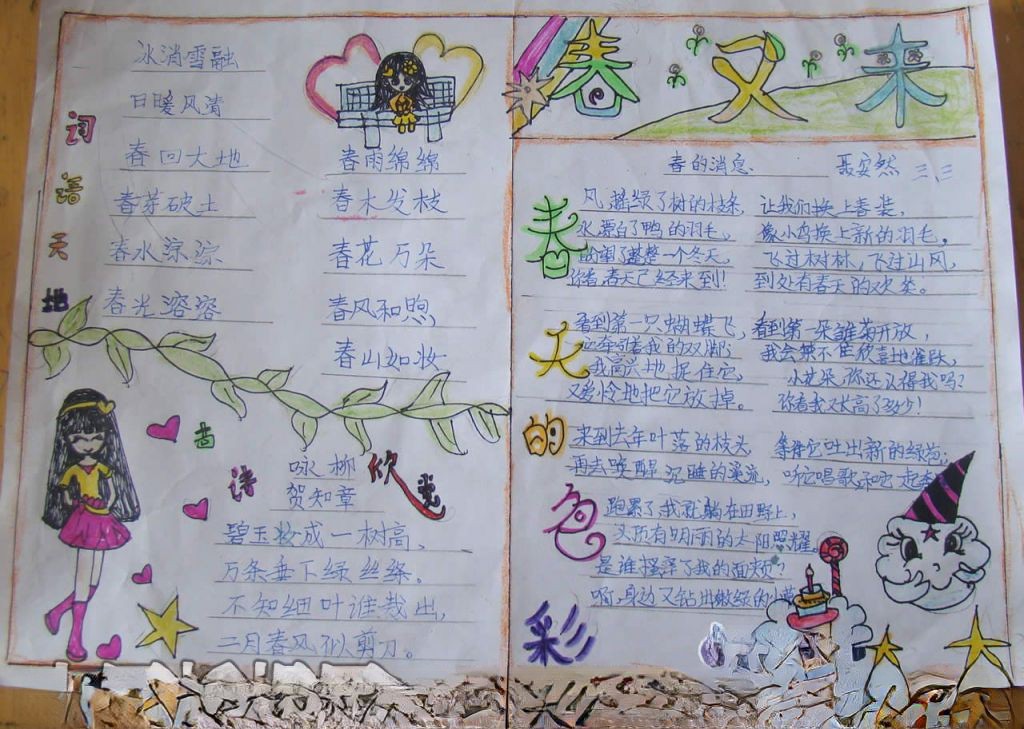 词语天地
冰消雪融
日暖风清
春回大地
春芽破土
春水淙淙
春光溶溶
春雨绵绵
春木发枝
春花万朵
春风和煦
春山如妆
古诗欣赏
咏柳
贺知章
碧玉妆成一树高，
万条垂下绿丝绦。
不知细叶谁裁出，
二月春风似剪刀。
春又来
春的消息 聂安然 三、三
春天的色彩
风 摇绿了树的枝条，
水漂白了鸭的羽毛，
盼望了整整一个冬天，
你看，春天已经来到！
让我们换上春装，
像小鸟换上新的羽毛，
飞过树林，飞过山风，
到处有春天的欢笑。
看到第一只蝴蝶飞，
它牵引着我的双脚；
我高兴地捉住它，
又爱怜地把它放掉。
看到第一朵雏菊开放，
我会禁不住欣喜地雀跃，
小花朵，你还认得我吗？
你看我又长高了多少！
来到去年叶落的枝头
等待它吐出新的绿苞；
再去唤醒沉睡的溪流，
听它唱歌和它一起
跑累了我就躺在田野上，
头顶有明丽的太阳照耀。
是谁搔痒了我的面颊？
啊，身边又钻出嫩绿的小